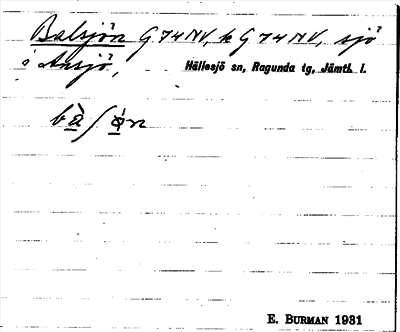 Balsjön G 74 NV, k G 74 NV, sjö
i Ansjö, Hällesjö sn, Ragunda tg, Jämtl. l.
E. BURMAN 1931